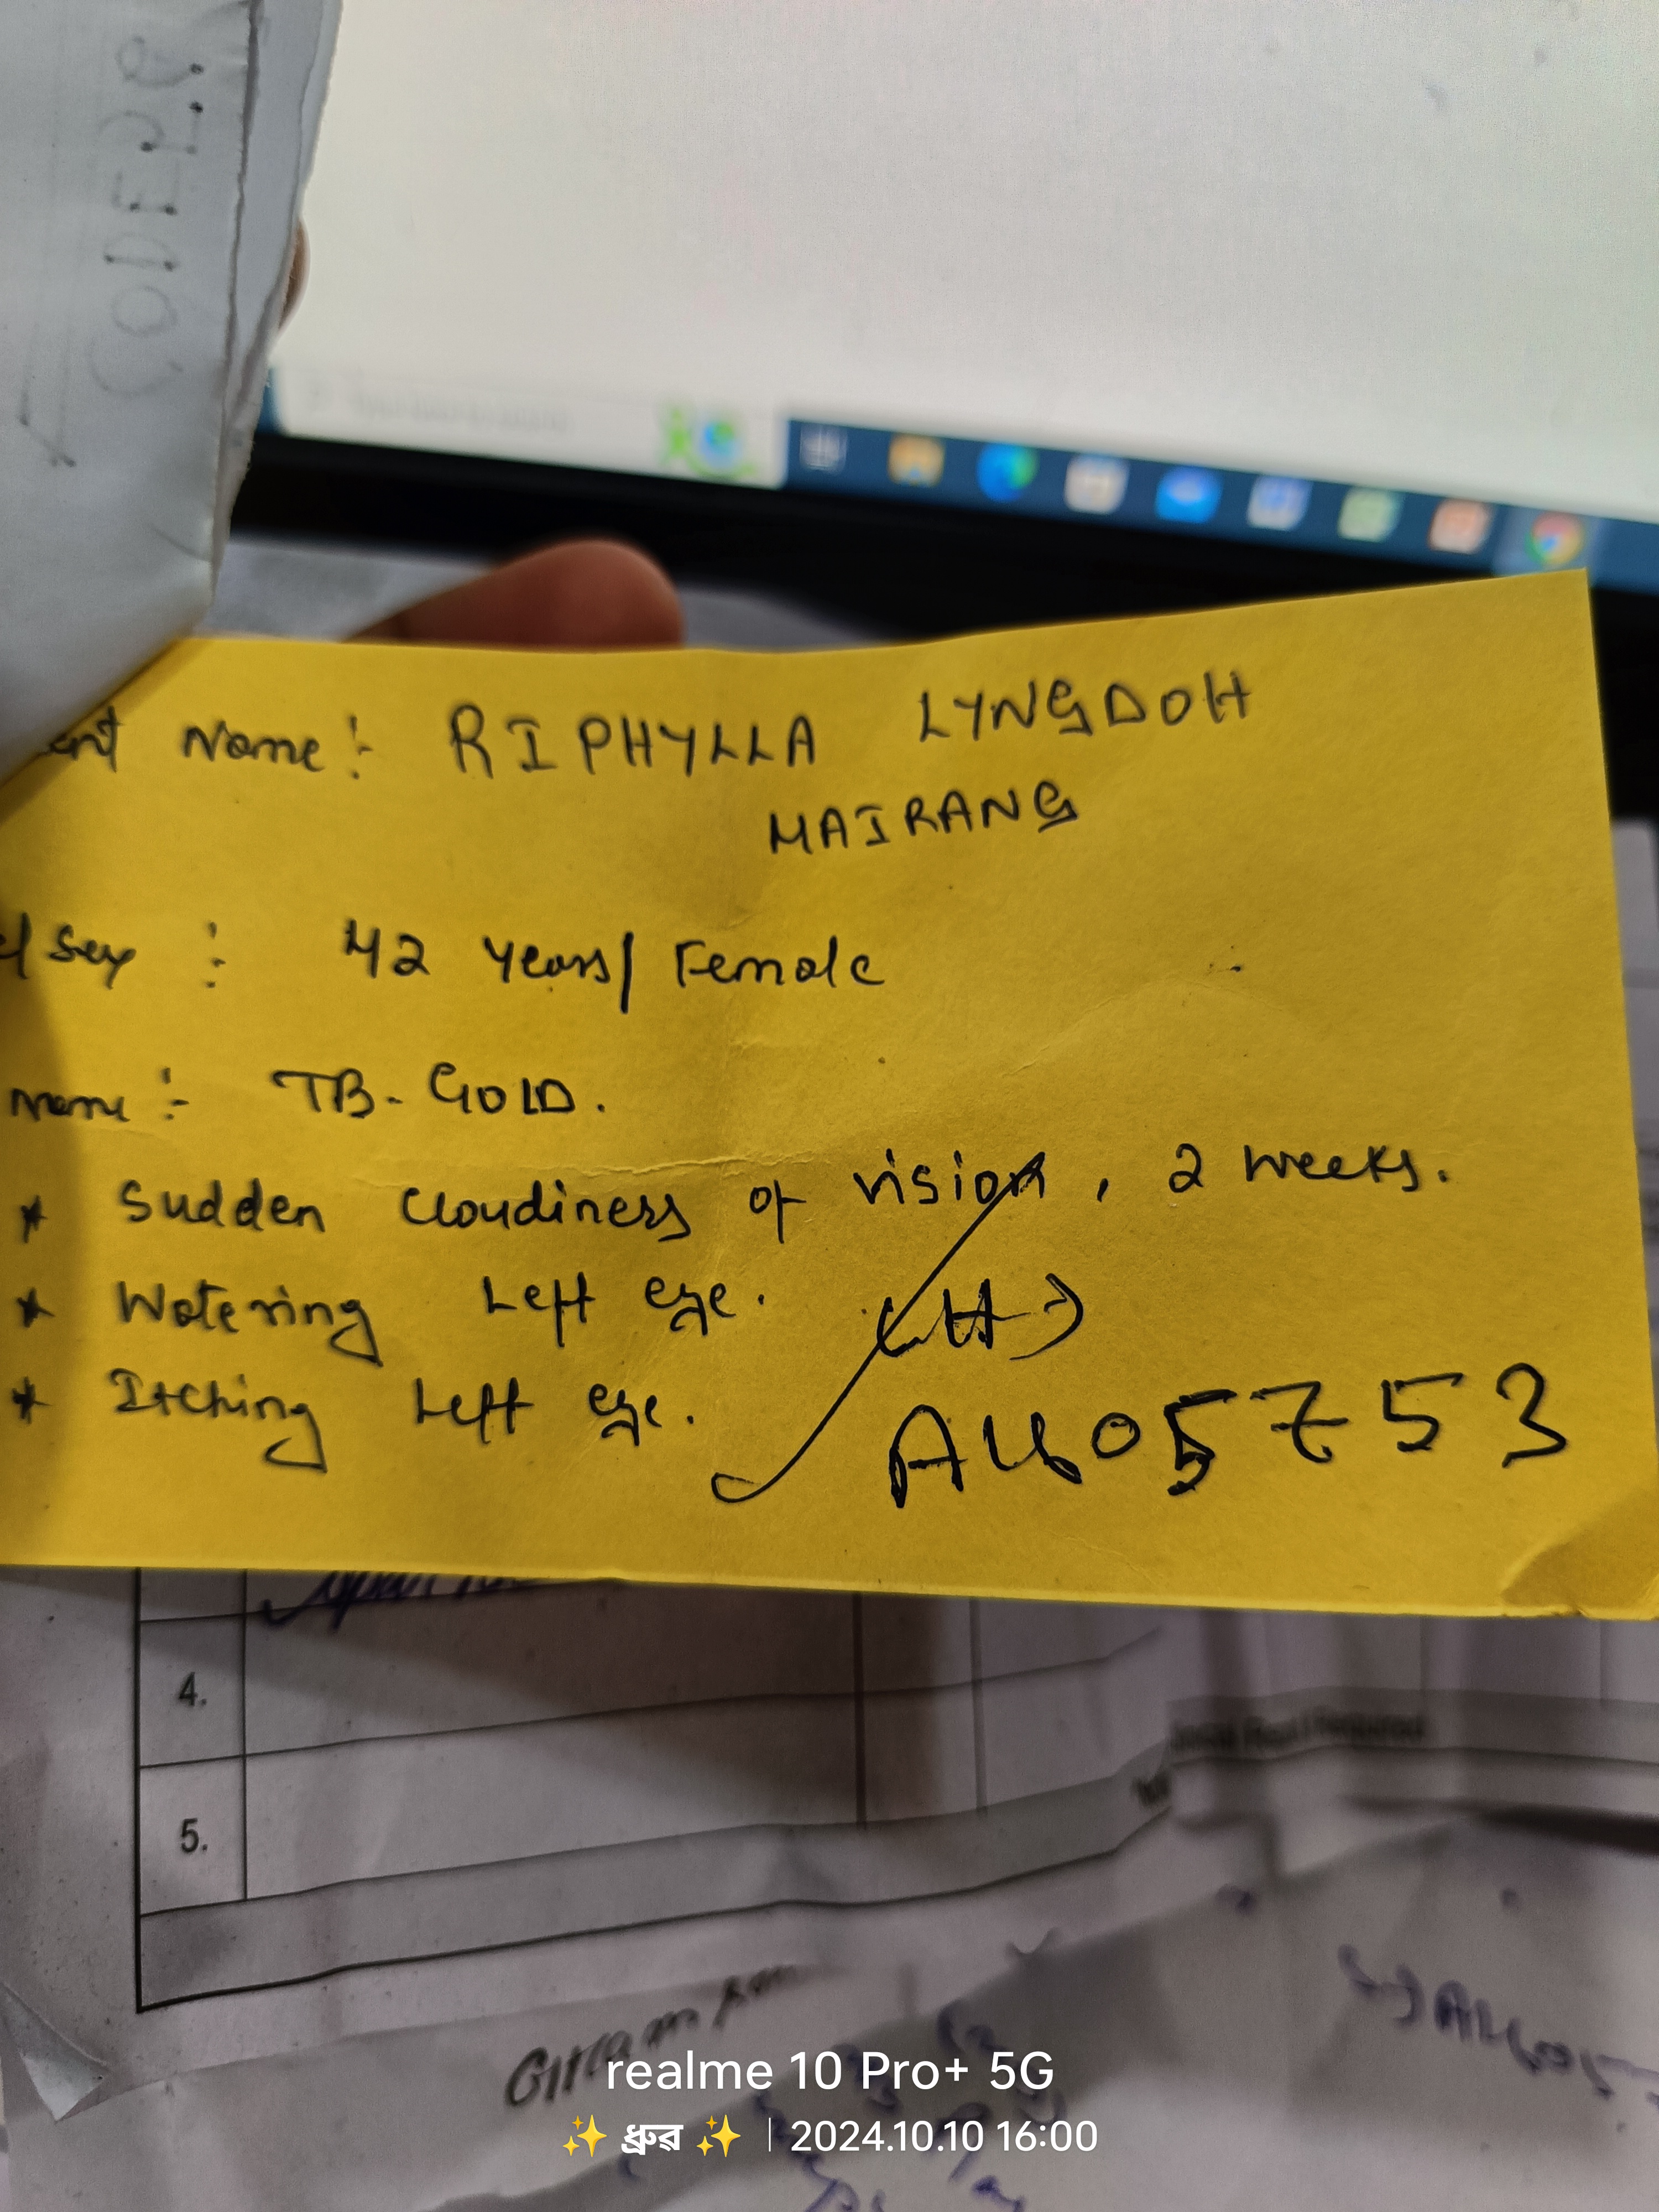 CODER.
ent Name:- RIPHYLLA LYNGDOH
MAIRANG
/Sex : 42 Years/ Female
name :- TB- GOLD.
* Sudden Cloudiness of vision, 2 weeks.
* Watering Left eye. (H)
* Itching Left eye. A4605753
4.
5.
realme 10 Pro+ 5G
✨ ধ্ৰুৱ ✨ | 2024.10.10 16:00